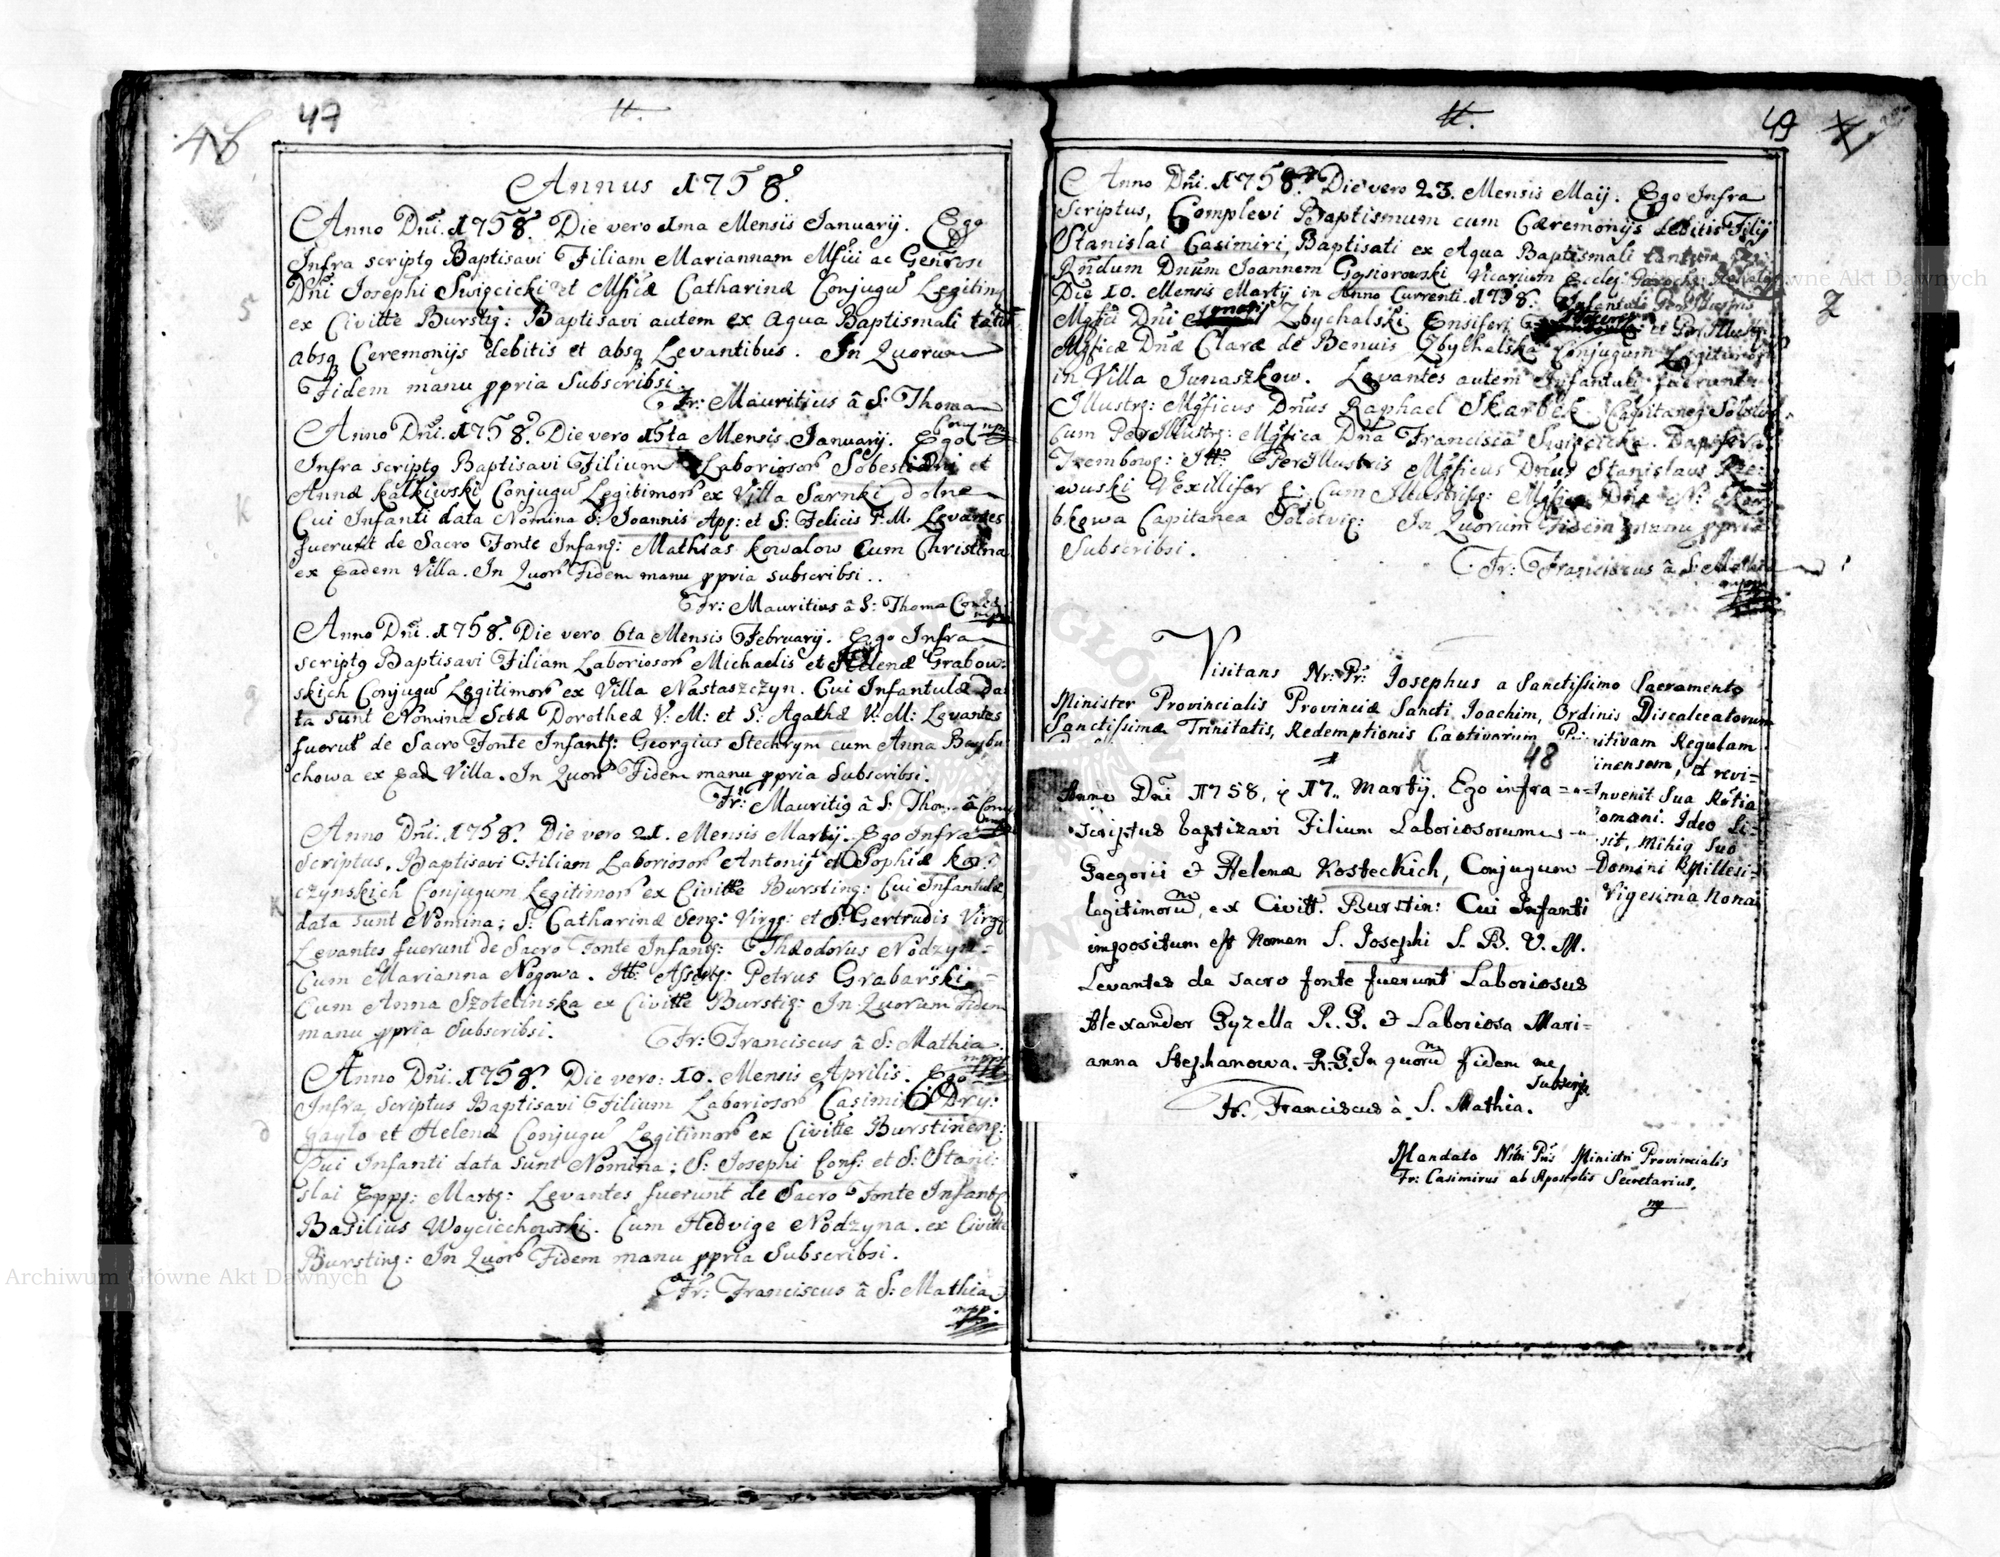 47
46
Annus 1758.
Anno Dni. 1758. Die vero 1ma Mensis Januarij. Ego
Infra scriptq Baptisavi Filiam Mariannam Mfici ac Genrosi
Dni Josephi Swięcicki et Mficæ Catharinæ Conjugũ Legitim
ex Civitte Burstiq: Baptisavi autem ex Aqua Baptismali tatũ
absq Ceremonijs debitis et absq Levantibus. In Quorum
Fidem manu ppria Subscribsi.
Fr: Mauritius â S: Thoma
Anno Dni. 1758. Die vero 15ta Mensis Januarij. Ego
Infra scriptq Baptisavi Filium Laboriosor Sobestiani et
Annæ Kalkiwski Conjugũ Legitimor ex Villa Sarnki dolne
Cui Infanti data Nomina S: Joannis Ap: et S: Felicis P. M. Levantes
fuerunt de Sacro Fonte Infanq: Mathias Kowalow Cum Christina
ex Eadem Villa. In Quor Fidem manu ppria subscribsi..
Fr: Mauritius â S: Thoma
Anno Dni. 1758. Die vero 6ta Mensis Februarij. Ego Infra
scriptq Baptisavi Filiam Laboriosor Michaelis et Helenæ Grabow:
skich Conjugũ Legitimor ex Villa Nastaszczyn. Cui Infantulæ Da
ta sunt Nomina Sctæ Dorotheæ V: M: et S: Agathæ V: M: Levantes
fuerut de Sacro Fonte Infantq: Georgius Stechrym cum Anna Baybu
chowa ex Ead Villa. In Quor Fidem manu ppria Subscribsi.
Fr: Mauritiq â S: Thoma
Anno Dni. 1758. Die vero 21. Mensis Martij. Ego Infra
Scriptus. Baptisavi Filiam Laboriosor Antonij et Sophiæ Ko:
czynskich Conjugum Legitimor ex Civitte Burstinq: Cui Infantulæ
data sunt Nomina; S: Catharinæ Senq: Virgq: et S: Gertrudis Virgq
Levantes fuerunt de Sacro Fonte Infantq: Theodorus Nodzyn=
Cum Marianna Nogowa. Itt: Assistq: Petrus Grabarski=
Cum Anna Szotelinska ex Civitte Burstiq: In Quorum Fidem
manu ppria Subscribsi.
Fr: Franciscus â S: Mathia.
Anno Dni. 1758. Die vero: 10. Mensis Aprilis. Ego
Infra Scriptus Baptisavi Filium Laboriosor Casimiri Dry:
gaylo et Helenæ Conjugũ Legitimor ex Civitte Burstinenq:
Cui Infanti data sunt Nomina; S: Josephi Conf: et S: Stani:
slai Eppq: Martq: Levantes fuerunt de Sacro Fonte Infantq
Basilius Woyciechowski. Cum Hedvige Nodzyna. ex Civitte
Burstinq: In Quor Fidem manu ppria Subscribsi.
Fr: Franciscus â S: Mathia
mpp.
49
Anno Dni. 1758. Die vero 23. Mensis Maij. Ego Infra
Scriptus, Complevi Baptismum cum Cæremonijs debitis Filij
Stanislai Casimiri, Baptisati ex Aqua Baptismali tantum per
Rndum Dnum Joannem Gąsiorowski Vicarium Eccles:
Die 10. Mensis Martij in Anno Currenti. 1758.
Mgfici Dni Zbychalski Ensiferi et PerIllust:
Mgficæ Dnæ Claræ de Benuis Zbychalska Conjugum Legitimor
in Villa Junaszkow. Levantes autem Infantuli fuerunt
Illustrq: Mgficus Dnus Raphael Skarbek Capitaneq
Cum PerIllustrq: Mgfica Dna Francisca Swięcicka.
Trembowq: Itt: PerIllustris Mgficus Dnus Stanislaus Rze:
wuski Vexillifer Cum Illustrisq: Mgfica Dna N: Skar
bkowa Capitanea Solotviq: In Quorum Fidem manu ppria
Subscribsi.
Fr: Franciscus â S: Mathia
Visitans Nr: Pr: Josephus a Sanctissimo Sacramento
Minister Provincialis Provinciæ Sancti Joachim, Ordinis Discalceatorum
Sanctissimæ Trinitatis, Redemptionis Captivorum
itivam Regulam
inensem, et revi=
Invenit Sua Rětia
omani. Ideo Li=
sit, Mihiq Suo
Domini Millesi=
Vigesima Nona
48
Anno Dni 1758, 17. Martij. Ego infra=
scriptus baptizavi Filium Laboriosorum
Gregorii et Helenæ Kosteckich, Conjugum
legitimorũ, ex Civitt. Burstin: Cui Infanti
impositum est Nomen S. Josephi S. B. V. M.
Levantes de sacro fonte fuerunt Laboriosus
Alexander Gyzella R. G. et Laboriosa Mari=
anna Stephanowa. R. G. In quorũ fidem me
subscrip.
Fr. Franciscus à S. Mathia.
Mandato Ntri Pris Ministri Provincialis
Fr: Casimirus ab Apostolis Secretarius,
mp
Archiwum Główne Akt Dawnych